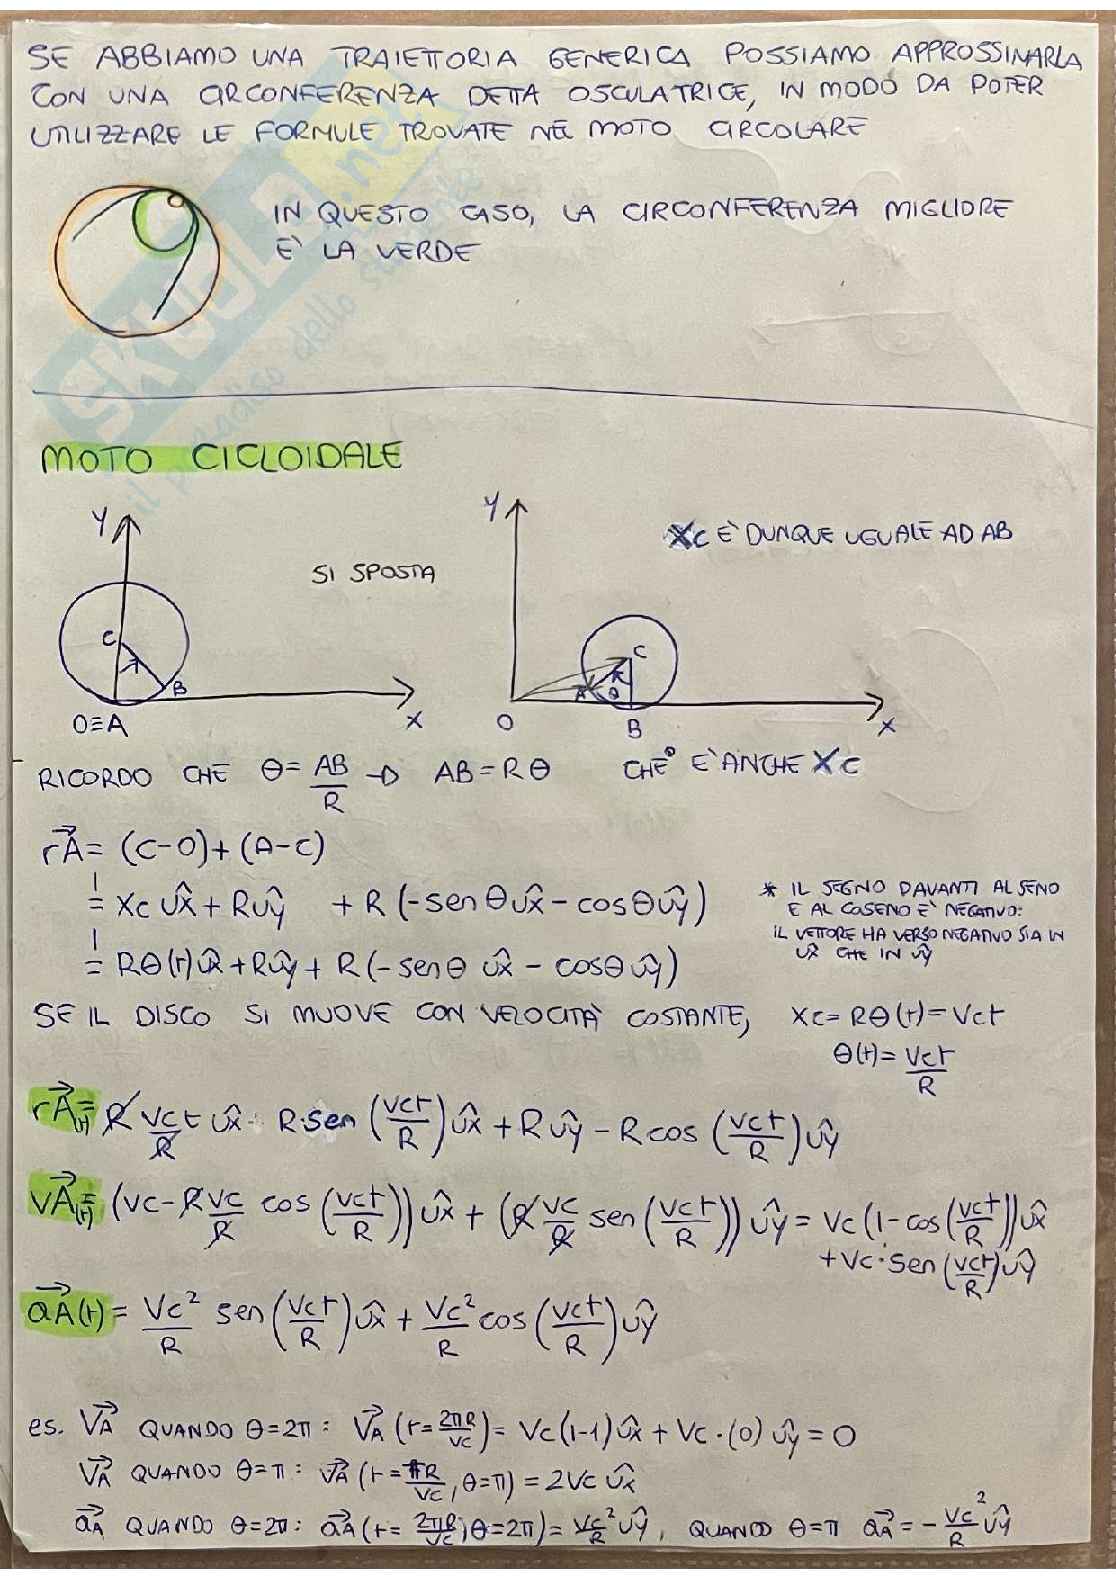 SE ABBIAMO UNA TRAIETTORIA GENERICA POSSIAMO APPROSSINARLA
CON UNA CIRCONFERENZA DETTA OSCULATRICE, IN MODO DA POTER
UTILIZZARE LE FORMULE TROVATE NEL MOTO CIRCOLARE
IN QUESTO CASO, LA CIRCONFERENZA MIGLIORE
E' LA VERDE
SKUOLA.net
il paradiso dello studente
MOTO CICLOIDALE
y
C
B
O≡A
x
SI SPOSTA
y
C
A
θ
O
B
x
XC E' DUNQUE UGUALE AD AB
RICORDO CHE θ = AB/R → AB = Rθ
CHE E' ANCHE XC
rA = (C-O) + (A-C)
= Xc ûx + Rûy + R (-senθûx - cosθûy)
= Rθ(t)ûx + Rûy + R (-senθ ûx - cosθ ûy)
* IL SEGNO DAVANTI AL SENO
E AL COSENO E' NEGATIVO:
IL VETTORE HA VERSO NEGATIVO SIA IN
ûx CHE IN ûy
SE IL DISCO SI MUOVE CON VELOCITA' COSTANTE, Xc = Rθ(t) = Vct
θ(t) = Vct/R
rA(t) = R Vc/R t ûx - R·sen (Vct/R) ûx + Rûy - R cos (Vct/R) ûy
VA(t) = (Vc - R Vc/R cos (Vct/R)) ûx + (R Vc/R sen (Vct/R)) ûy = Vc (1 - cos (Vct/R)) ûx
+ Vc · sen (Vct/R) ûy
aA(t) = Vc²/R sen (Vct/R) ûx + Vc²/R cos (Vct/R) ûy
es. VA QUANDO θ=2π : VA (t = 2πR/Vc) = Vc (1-1) ûx + Vc · (0) ûy = 0
VA QUANDO θ=π : VA (t = πR/Vc, θ=π) = 2Vc ûx
aA QUANDO θ=2π : aA (t = 2πR/Vc, θ=2π) = Vc²/R ûy, QUANDO θ=π aA = - Vc²/R ûy